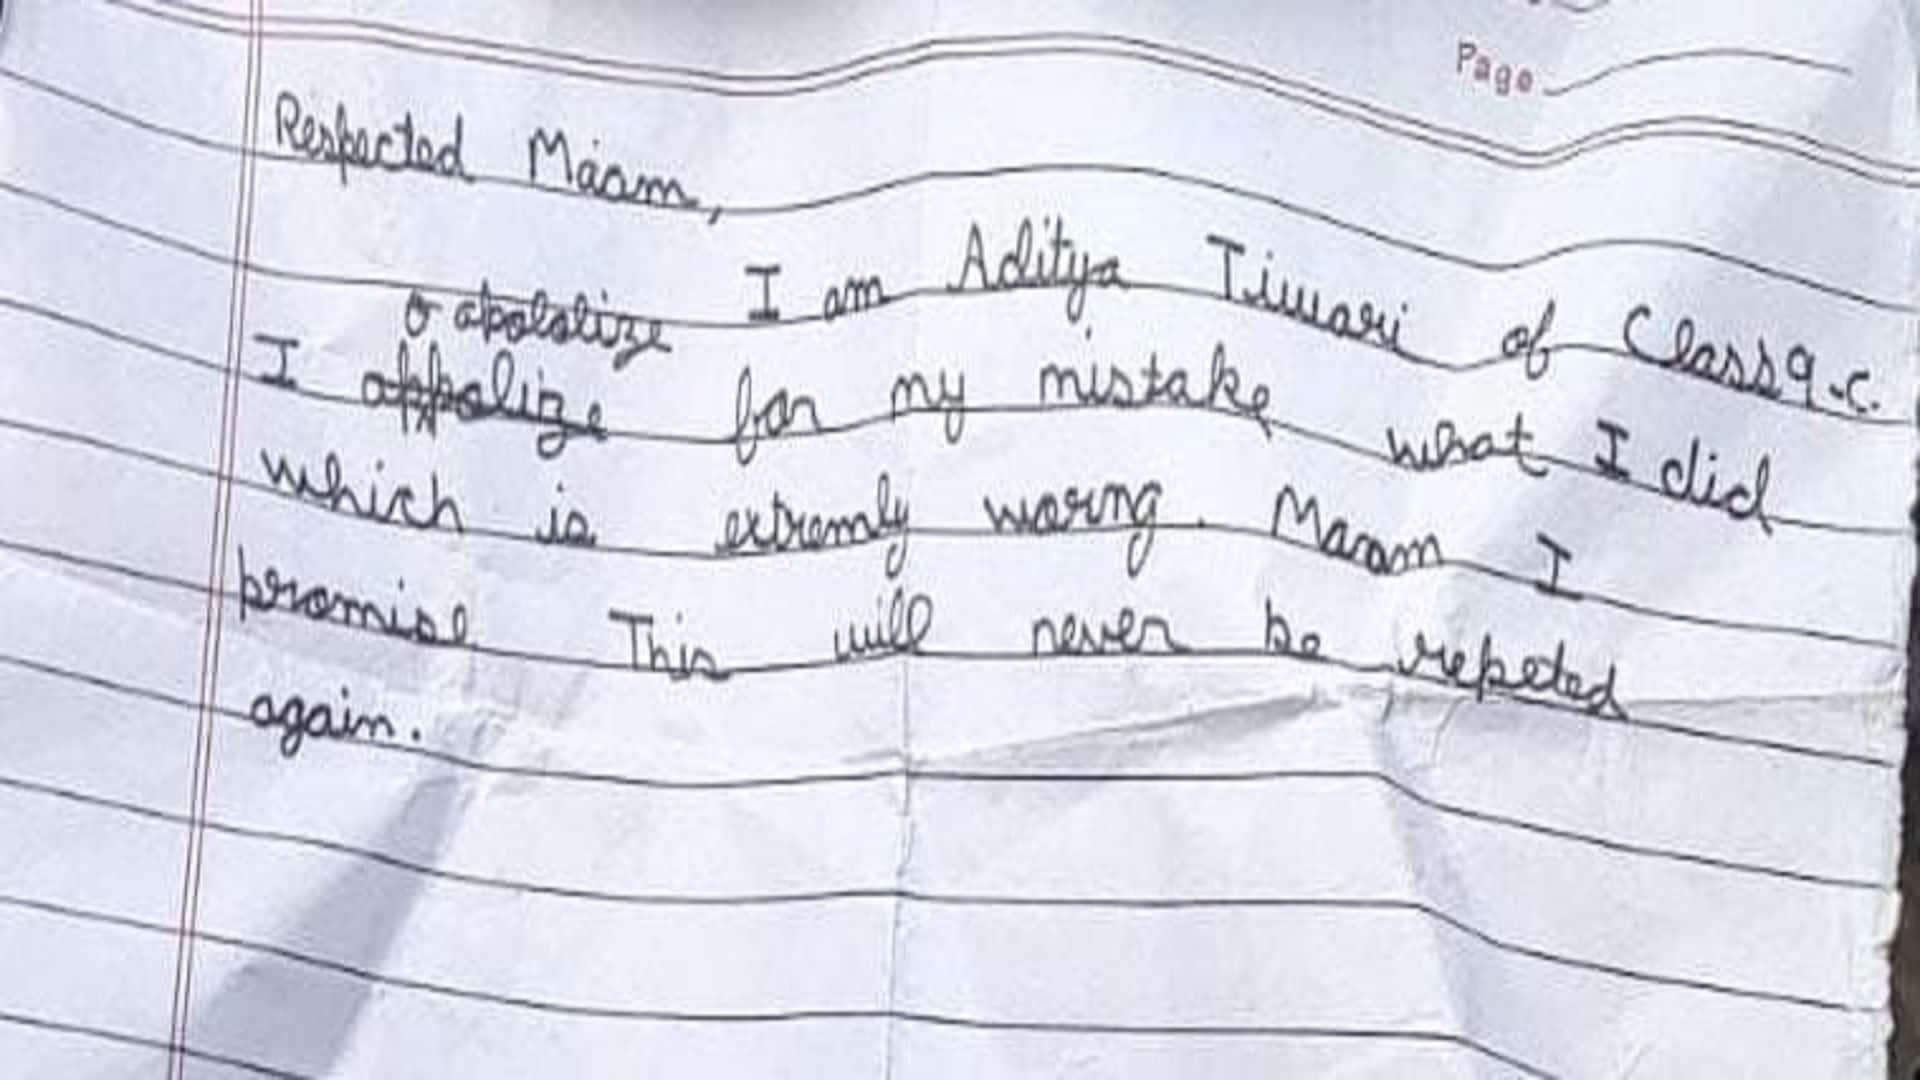 Page
Respected Máam,
I am Aditya Tiwari of Class 9-C.
apololize
I appolize for my mistake what I did
which is extremly worng. Maam I
promise This will never be repeted
again.